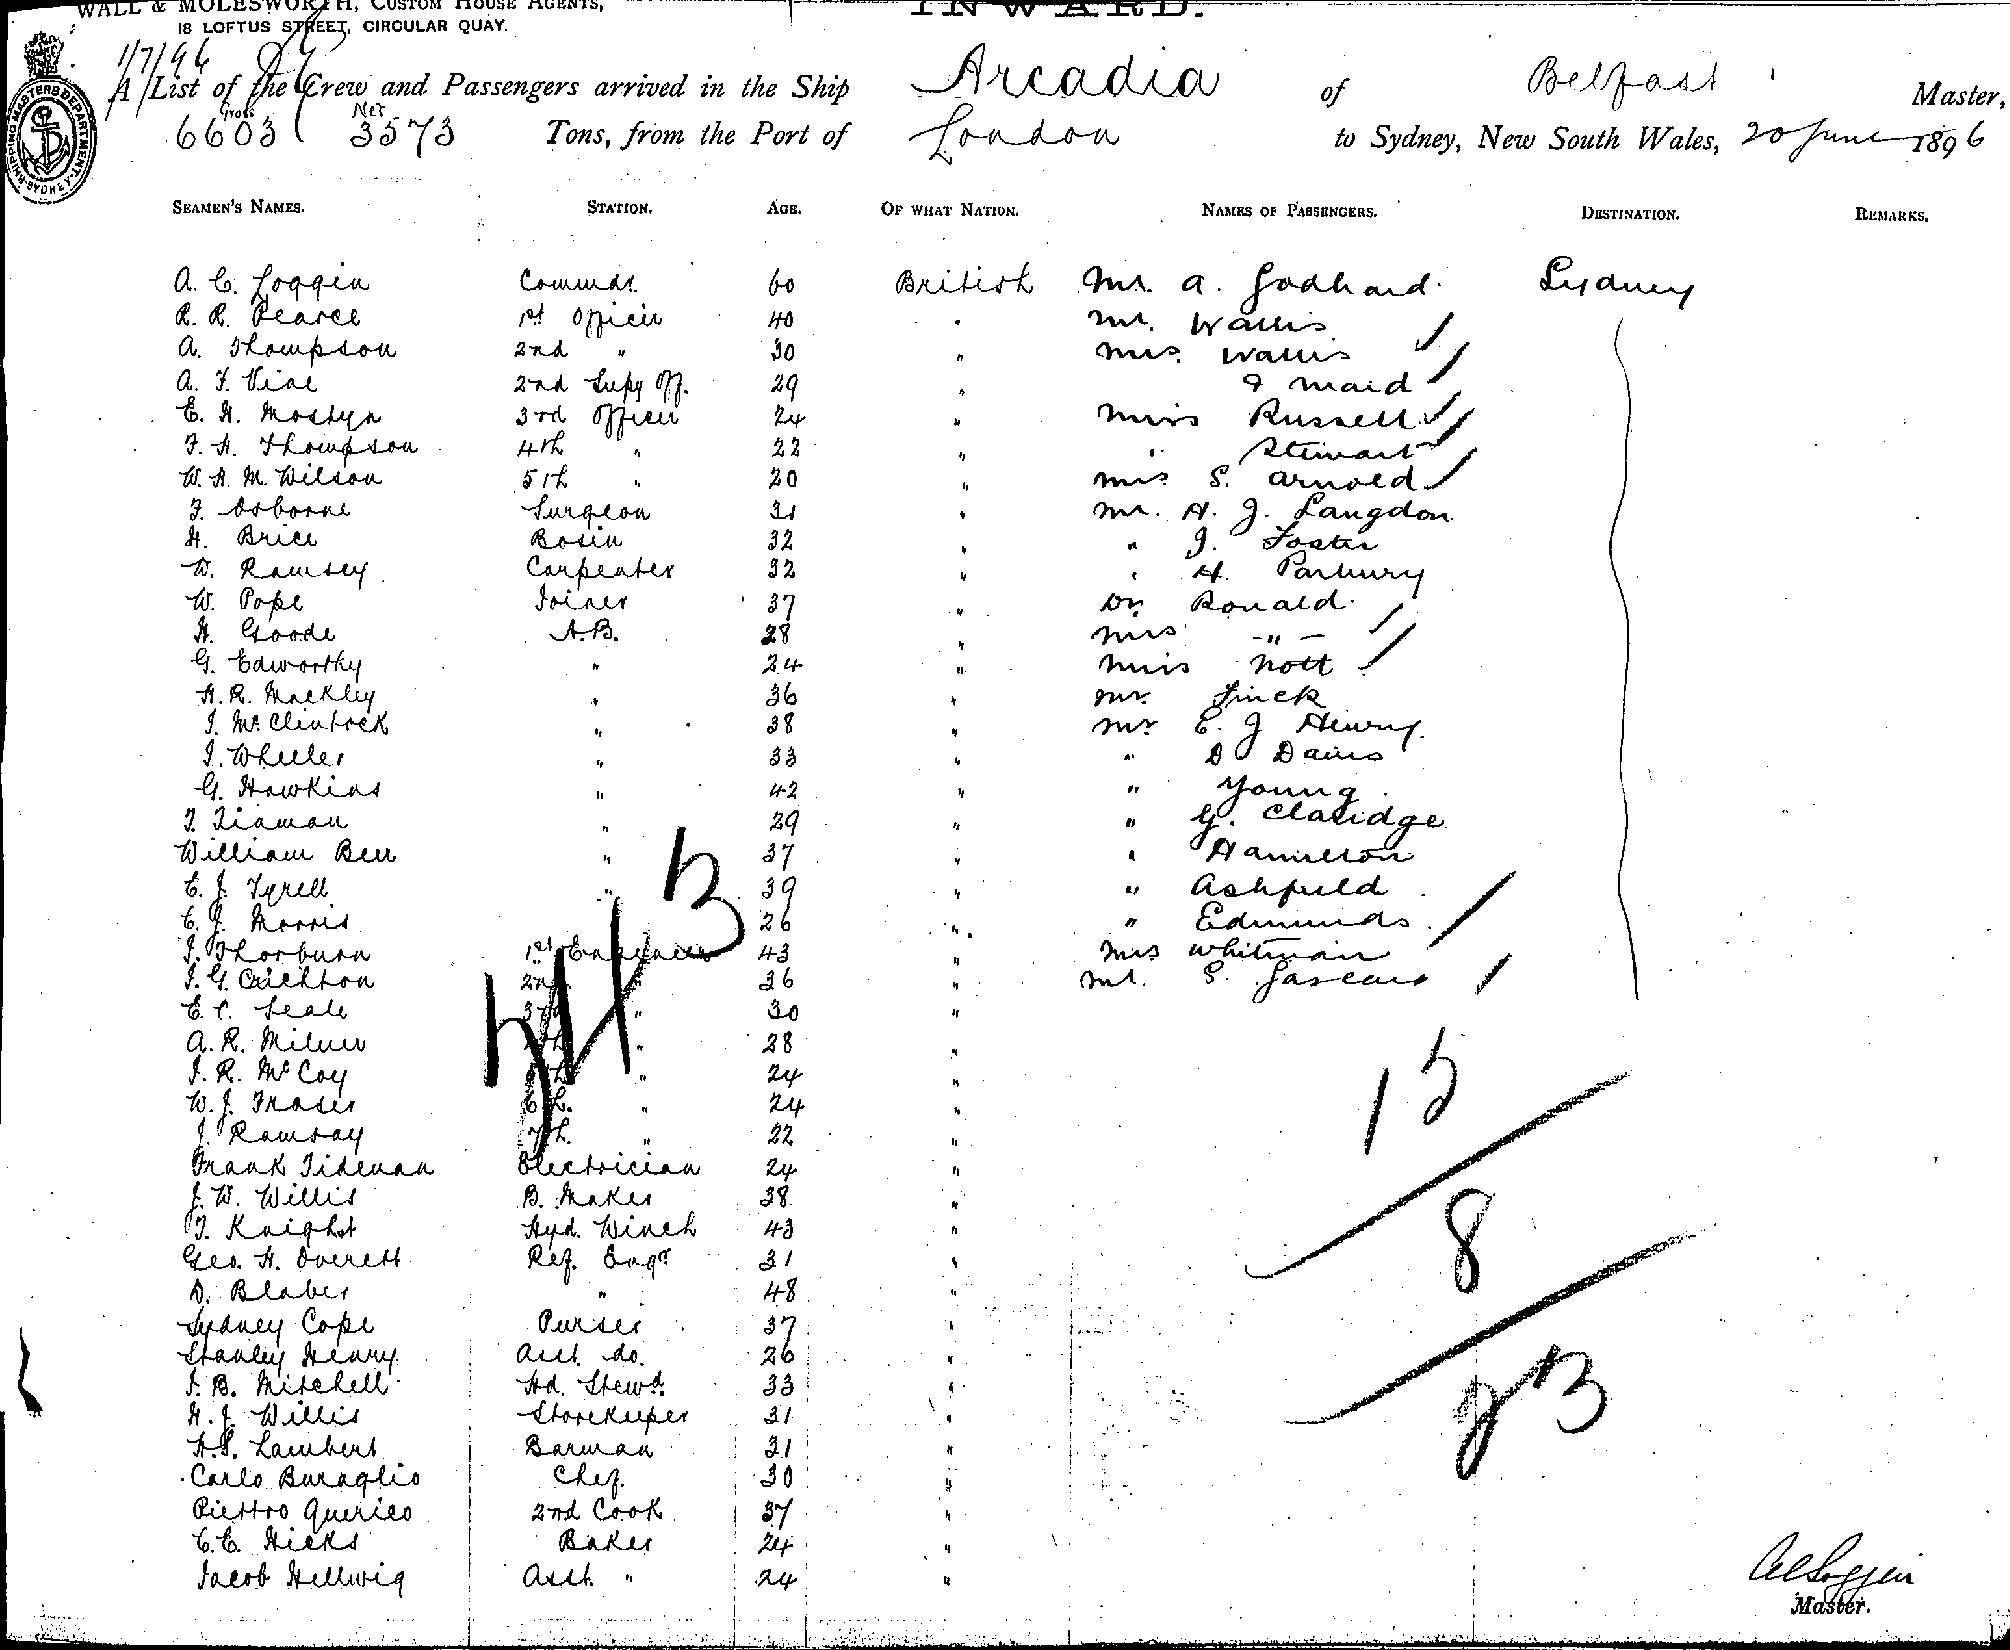 WALL & MOLESWORTH, CUSTOM HOUSE AGENTS,
18 LOFTUS STREET, CIRCULAR QUAY.
INWARD.
1/7/96
A List of the Crew and Passengers arrived in the Ship Arcadia of Belfast Master,
Gross 6603 Net 3573 Tons, from the Port of London to Sydney, New South Wales, 20 June 1896
SHIPPING MASTERS DEPARTMENT SYDNEY
SEAMEN'S NAMES. STATION. AGE. OF WHAT NATION. NAMES OF PASSENGERS. DESTINATION. REMARKS.
A. C. Loggin Commdr. 60 British Mr. A. Godhard Sydney
R. R. Pearce 1st Officer 40 " Mr. Wallis
A. Thompson 2nd " 30 " Mrs. Wallis
A. F. Vine 2nd Supy Off. 29 " & maid
E. H. Mostyn 3rd Officer 24 " Miss Russell
F. H. Thompson 4th " 22 " " Stewart
W. H. M. Wilson 5th " 20 " Mrs S. Arnold
F. Osborne Surgeon 31 " Mr. H. J. Langdon
H. Brice Bosin 32 " " J. Foster
W. Ramsey Carpenter 32 " " H. Parbury
W. Pope Joiner 37 " Dr. Ronald
H. Goode A.B. 28 " Mrs - " -
G. Edworthy " 24 " Miss Nott
H. R. Mackley " 36 " Mr. Finck
J. McClintock " 38 " Mr E. J Henry
J. Wheeler " 33 " " D Davis
G. Hawkins " 42 " " Young
" 29 " " G. Claridge
William Bell " 37 " " Hamilton
E. J. Tyrell " 39 " " Ashfield
E. J. Morris 26 " " Edmunds
J. Thorburn 1st Engineer 43 " Mrs Whitman
J. G. Crichton 2nd 36 " Mr. S.
E. C. Seale 3rd " 30 "
A. R. Milner " 28 "
J. R. McCoy " 24 "
W. J. Fraser 6th. " 24 "
J. Ramsay 7th. " 22 "
Frank Tideman Electrician 24 "
J. W. Willis B. Maker 38 "
T. Knight Hyd. Winch 43 "
Geo. H. Everett Ref. Engr 31 "
D. Blaber " 48 "
Sydney Cope Purser 37 "
Stanley Henry Asst. do. 26 "
J. B. Mitchell Hd. Stewd. 33 "
H. J. Willis Storekeeper 31 "
H. S. Lambert Barman 31 "
Carlo Buraglio Chef. 30 "
Piettro Querico 2nd Cook 37 "
C. E. Hicks Baker 24 "
Jacob Hellwig Asst. " 24 "
13
15
8
23
A C Loggin
Master.